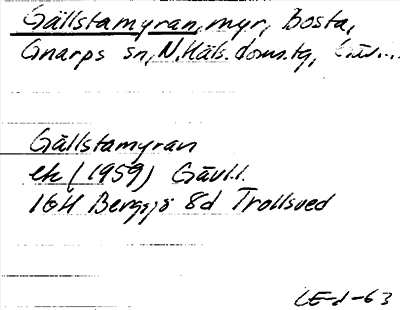 Gällstamyran, myr, Bosta,
Gnarps sn, N.Häls. doms.tg,
Gällstamyran
ek (1959) Gävl.l.
16H Bergsjö 8d Trollsved